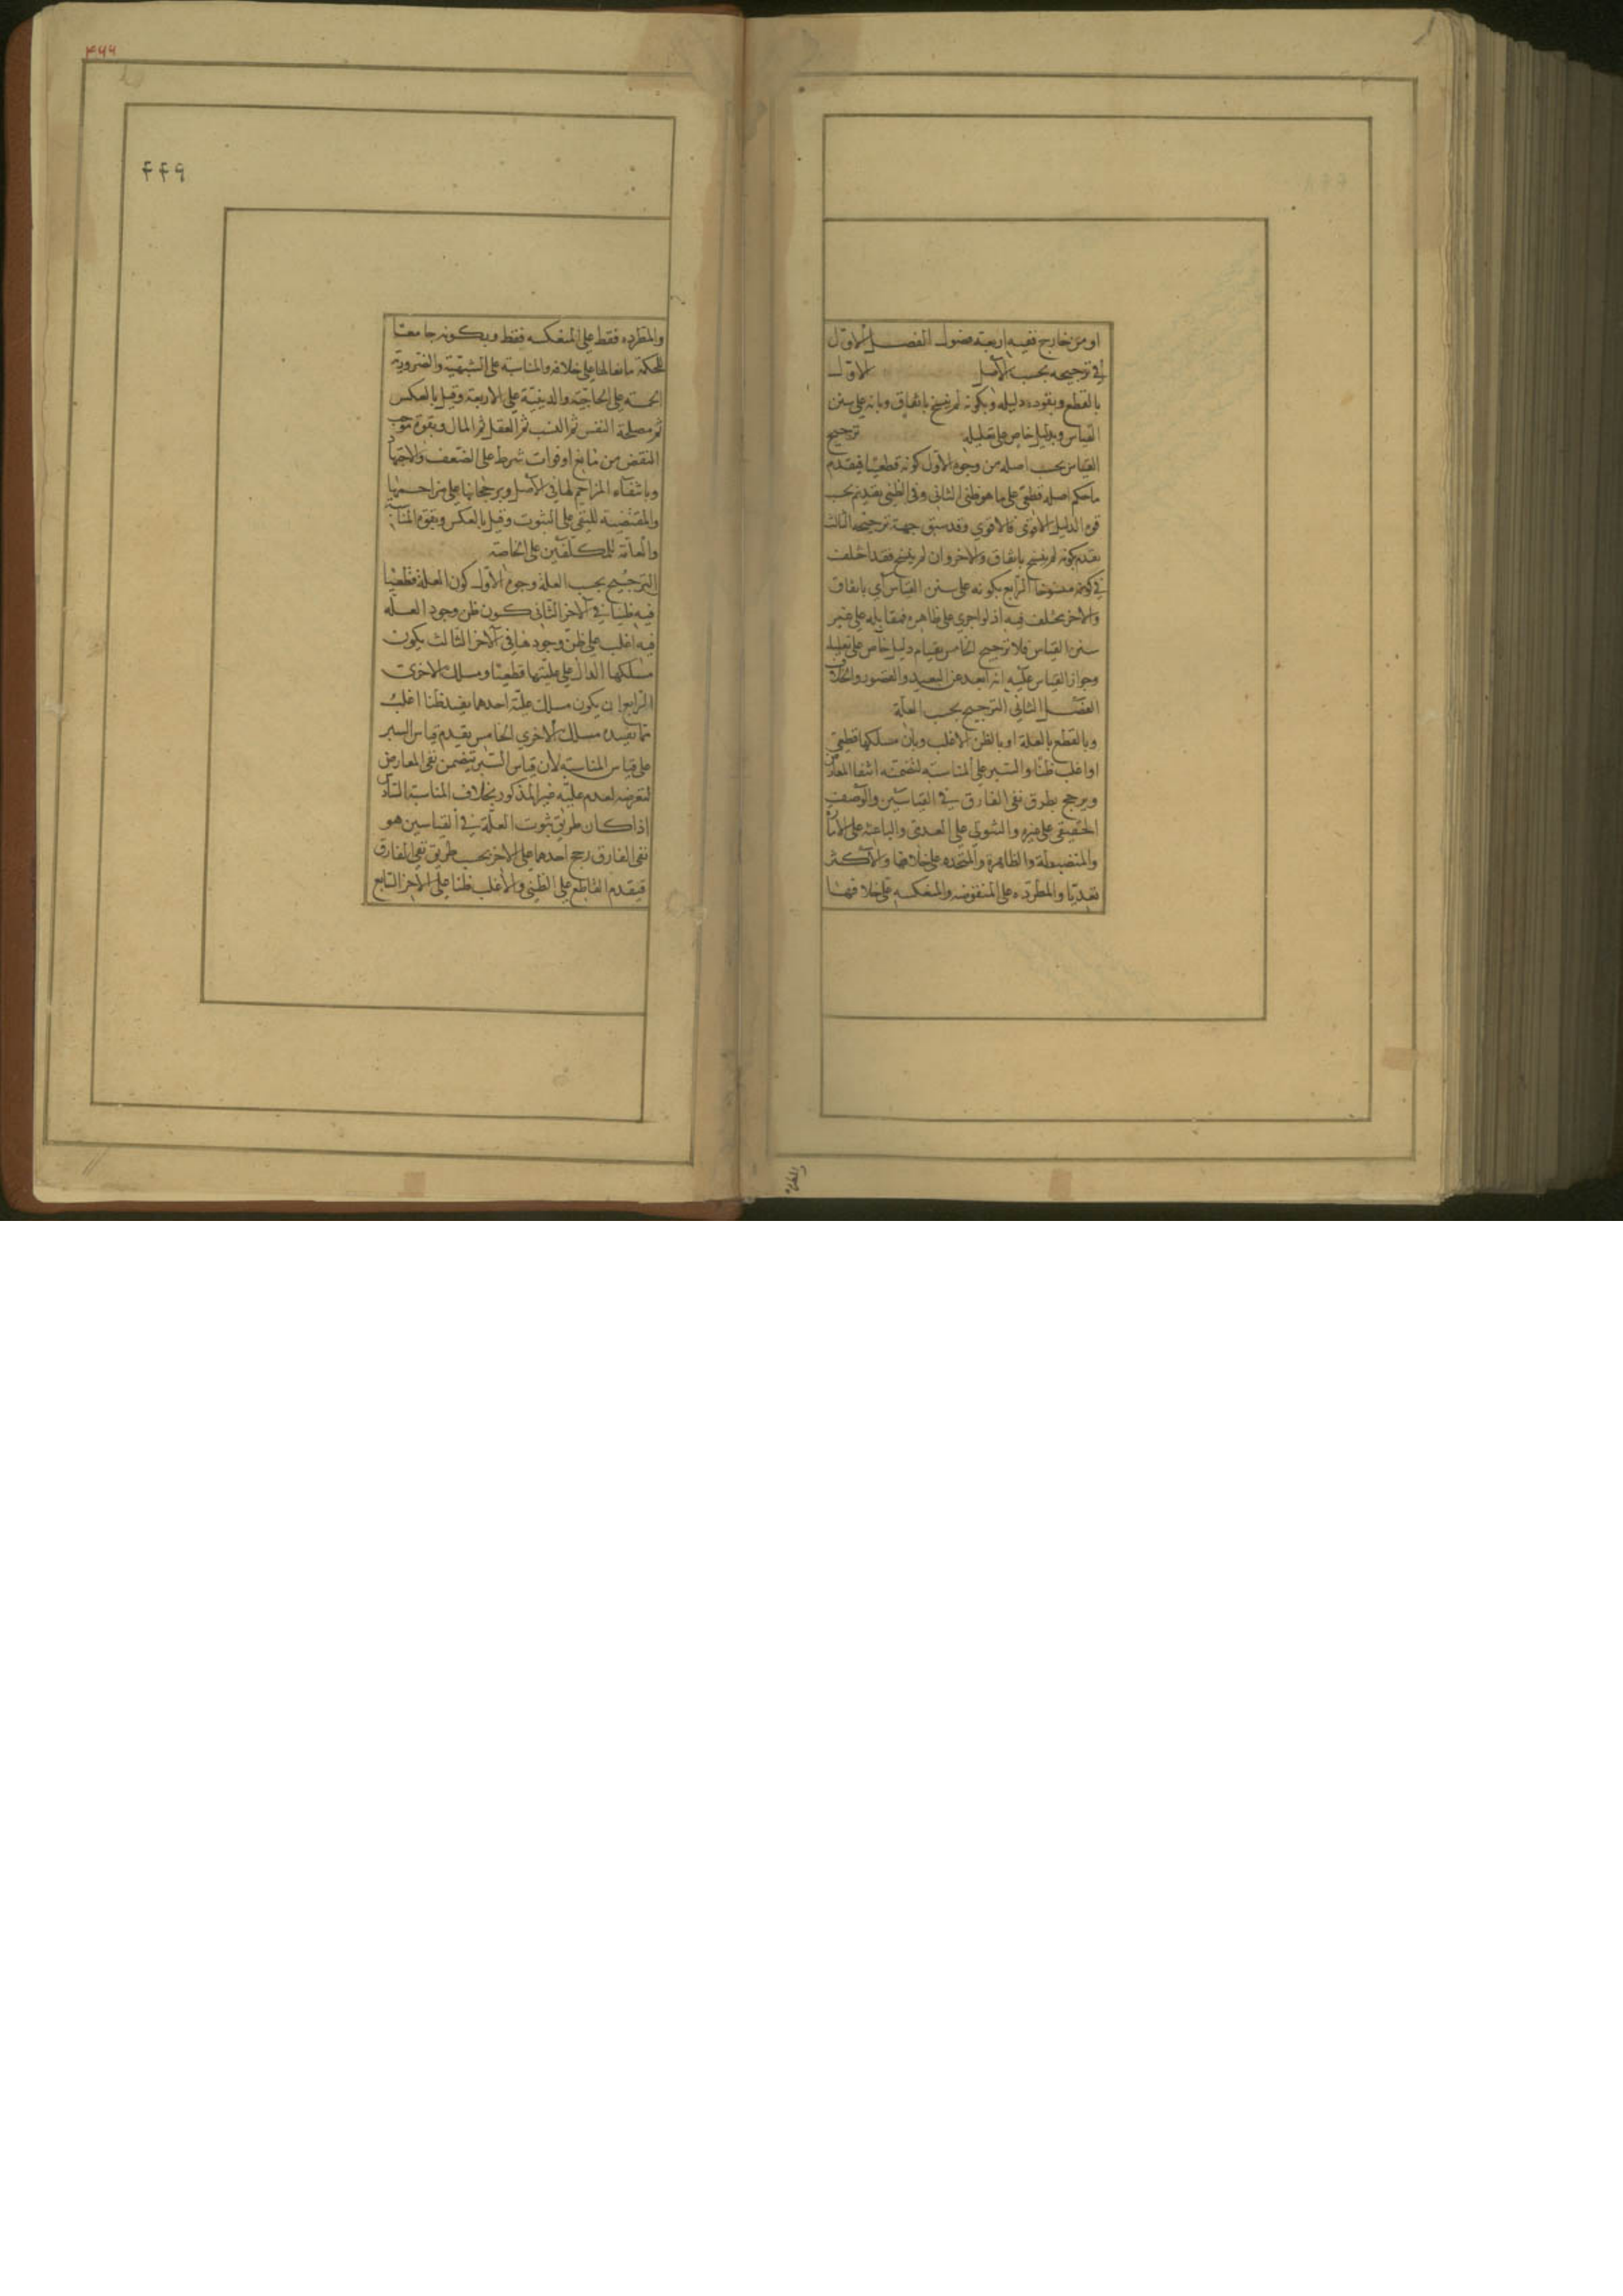 او من خارج ففيه اربعة فصول الفصل الاول
في ترجيحه بحسب الاصل الاول
بالقطع وبقوة دليله وبكونه لم ينسخ باتفاق وبانه على سنن
القياس وبدليل خاص على تعليله ترجيح
القياس بحسب اصله من وجوه الاول كونه قطعيا فيقدم
ما حكم اصله قطعى على ما هو ظنى الثانى وفى الظنى يقدم بحسب
قوه الدليل الاقوى فالاقوي وقد سبق جهة ترجيحه الثالث
يقدم بكونه لم ينسخ باتفاق والاخر وان لم ينسخ فقد اختلف
في كونه منسوخا الرابع بكونه على سنن القياس اي باتفاق
والاخر مختلف فيه اذ لو اجري على ظاهره فمقابله على غير
سنن القياس فلا ترجيح الخامس بقيام دليل خاص على تعليله
وجواز القياس عليه انه ابعد عن التعبد والقصور والخلاف
الفصل الثانى الترجيح بحسب العلة
وبالقطع بالعلة او بالظن الاغلب وبان مسلكها قطعى
او اغلب ظنا والسبر على المناسبه لتضمنه انتفا المعارض
ويرجح بطرق نفى الفارق في القياسين والوصف
الحقيقى على غيره والثبوتى على العدمى والباعثه على الامارة
والمنضبطة والظاهرة والمتحده على خلافها والاكثر
تعديا والمطرده على المنقوضه والمنعكسه على خلافها
والمطرده
٣٤٤
٤٤٩
والمطرده فقط على المنعكسه فقط وبكونه جامعا
للحكمة مانعا لها على خلافه والمناسبة على الشبهية والضرورية
الخمسه على الحاجيه والدينية على الاربعة وقيل بالعكس
ثم مصلحة النفس ثم النسب ثم العقل ثم المال وبقوة موجب
النقض من مانع او فوات شرط على الضعف والاحتمال
وبانتفاء المزاحم لها في الاصل وبرجحانها على مزاحمها
والمقتضية للنفى على الثبوت وقيل بالعكس وبقوه المناسبة
والعامة للمكلفين على الخاصة
الترجيح بحسب العلة وجوه الاول كون العلة قطعيا
فيه ظنيا في الاخر الثانى كون ظن وجود العله
فيه اغلب على ظن وجودها في الاخر الثالث بكون
مسلكها الدال على عليتها قطعيا ومسلك الاخرى
الرابع ان يكون مسلك علية احدهما يفيد ظنا اغلب
مما يفيده مسلك الاخري الخامس يقدم قياس السبر
على قياس المناسبه لان قياس السبر يتضمن نفى المعارض
لتعرضه لعدم علية غير المذكور بخلاف المناسبة السادس
اذا كان طريق ثبوت العلة في القياسين هو
نفى الفارق رجح احدهما على الاخر بحسب طريق نفى الفارق
فيقدم القاطع على الظنى والاغلب ظنا على الاخر السابع